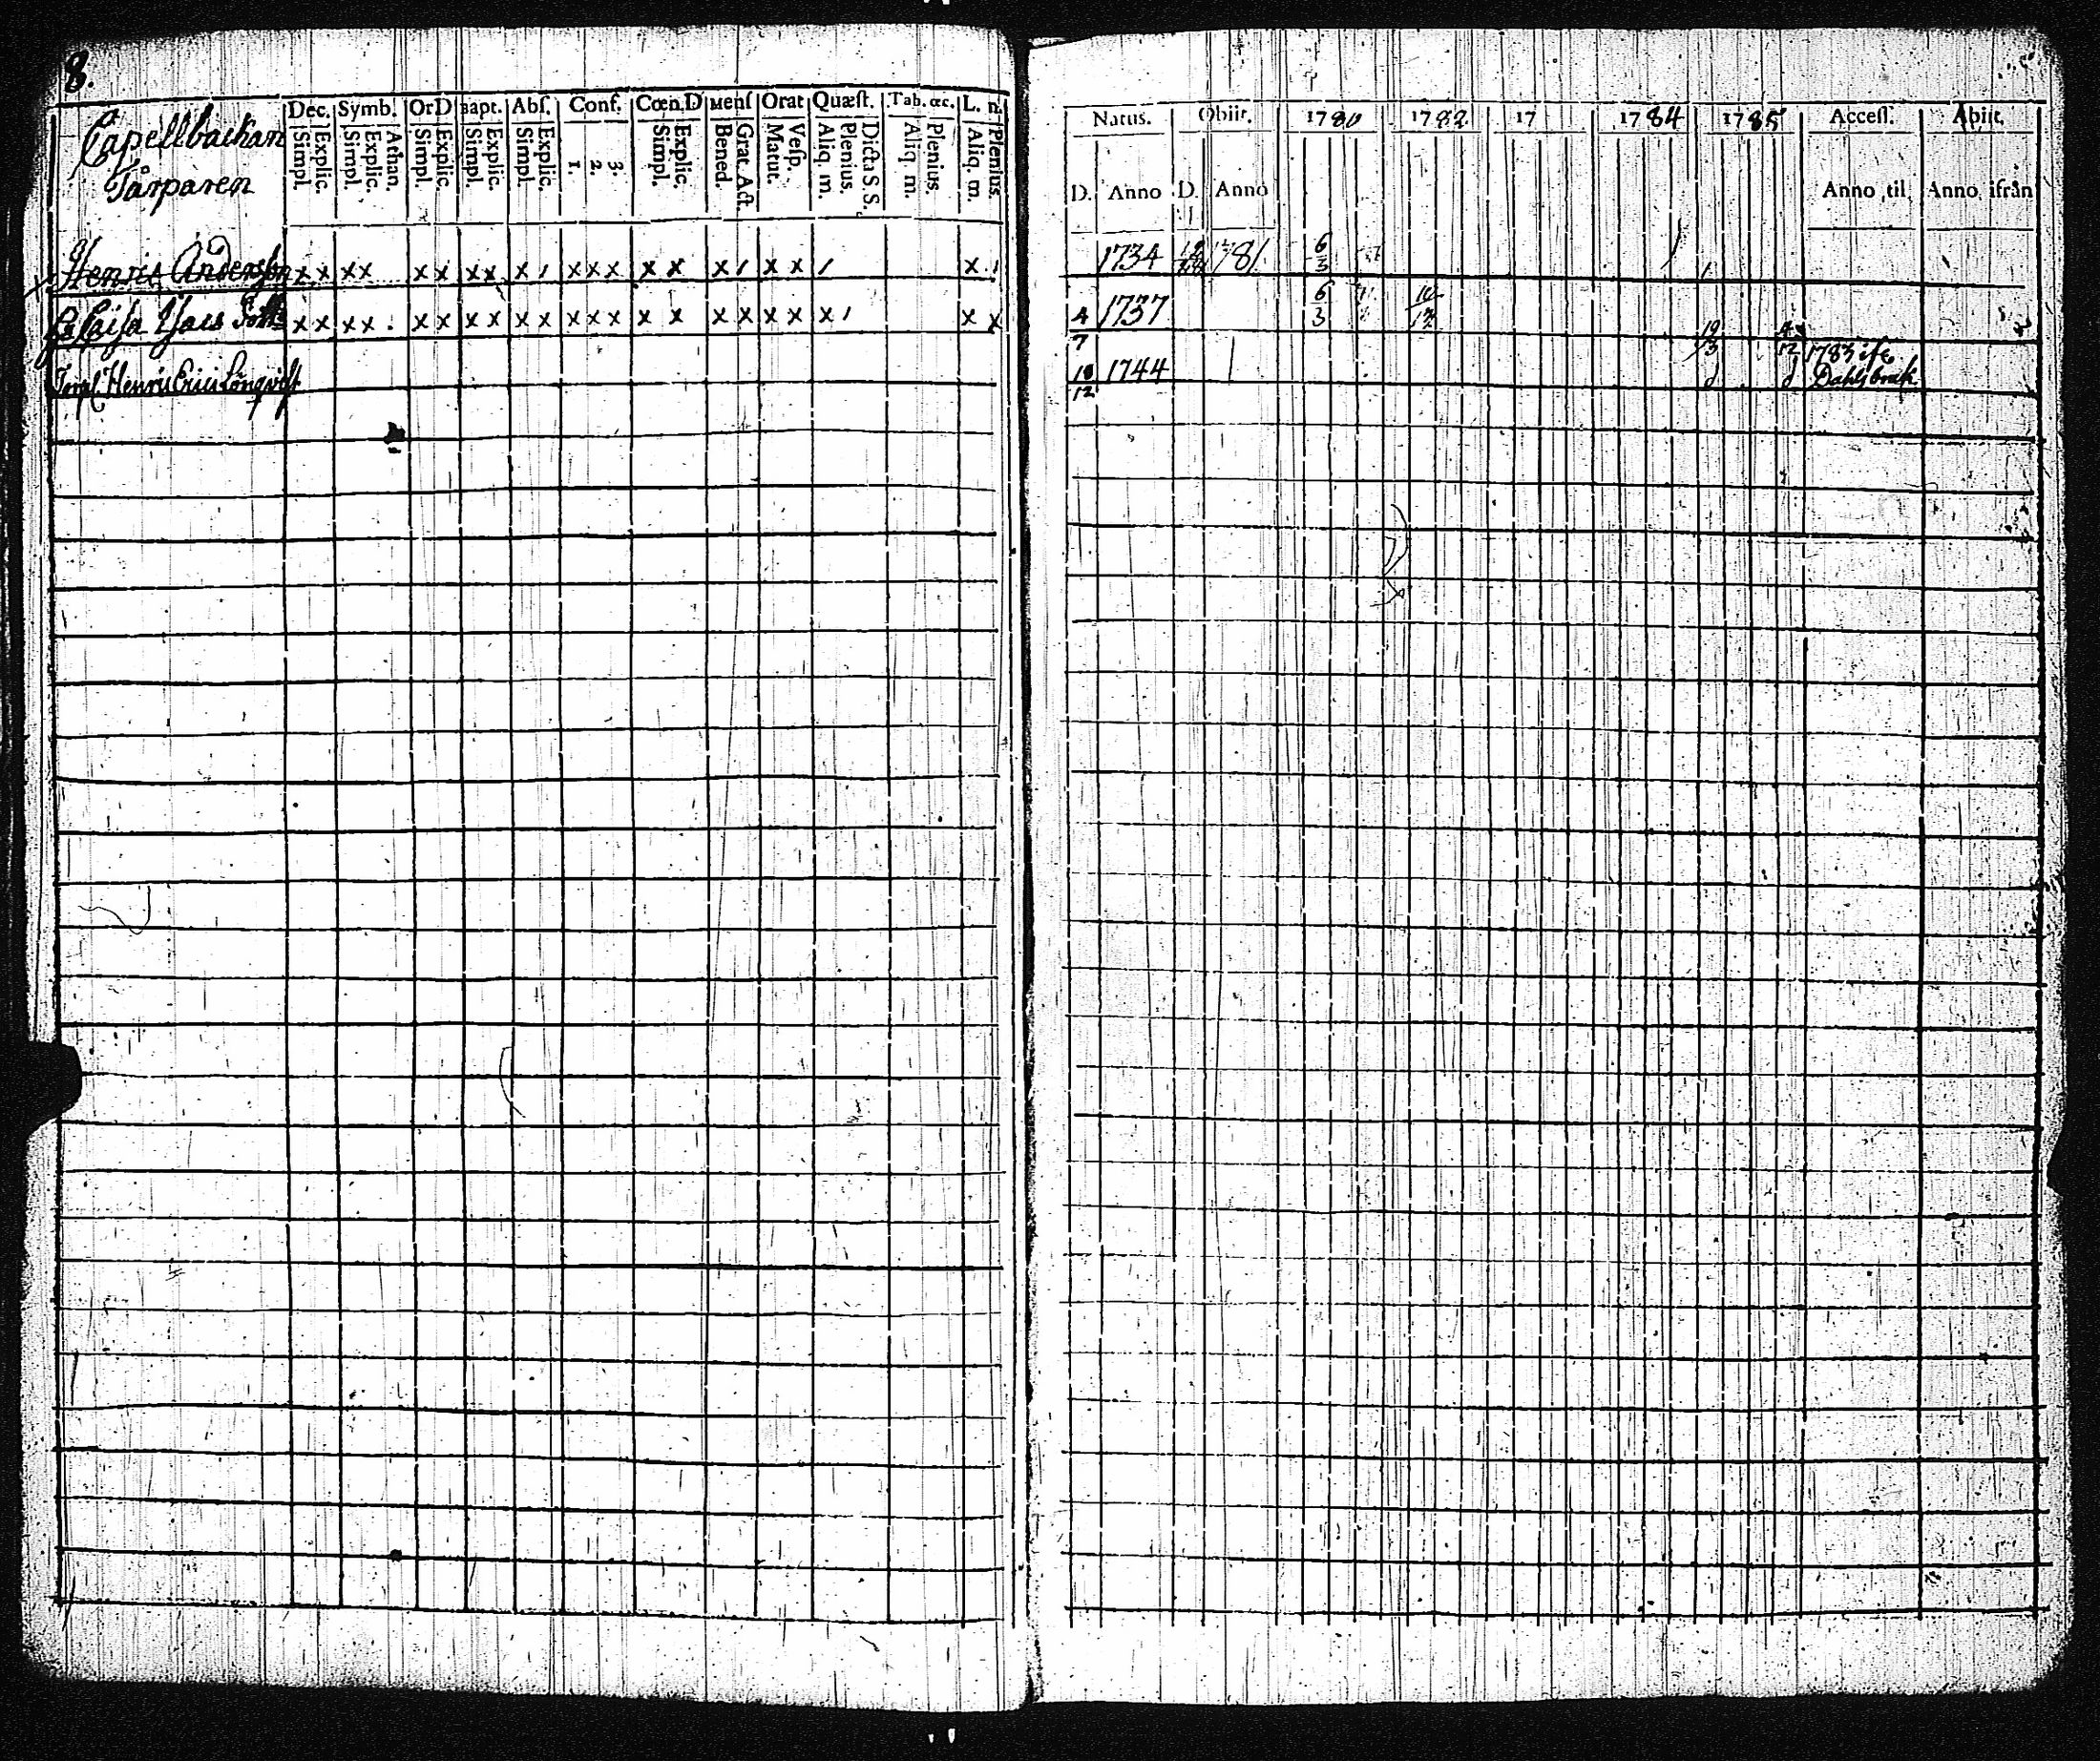 8.
Capellbackan
Tårparen
Dec. Symb. OrD Bapt. Abs. Conf. Cœn.D Mens Orat Quæst. Tab. œc. L. n.
Simpl. Explic. Simpl. Explic. Athan. Simpl. Explic. Simpl. Explic. Simpl. Explic. 1. 2. 3. Simpl. Explic. Bened. Grat. Act. Matut. Vesp. Aliq. m. Plenius. Dicta S S. Aliq. m. Plenius. Aliq. m. Plenius.
Natus. Obiit. 1780 1782 17 1784 1785 Access. Abiit.
D. Anno D. Anno Anno til Anno ifrån
Henric Andersson x x x x x x x x x / x x x x x x / x x / x / 1734 1781 6/3
Caisa x x x x . x x x x x x x x x x x x x x x x / x x 4/7 1737 6/3
Henric Erici Lönqvist 10/12 1744 19/3 1783 ifr
Dahlsbruk